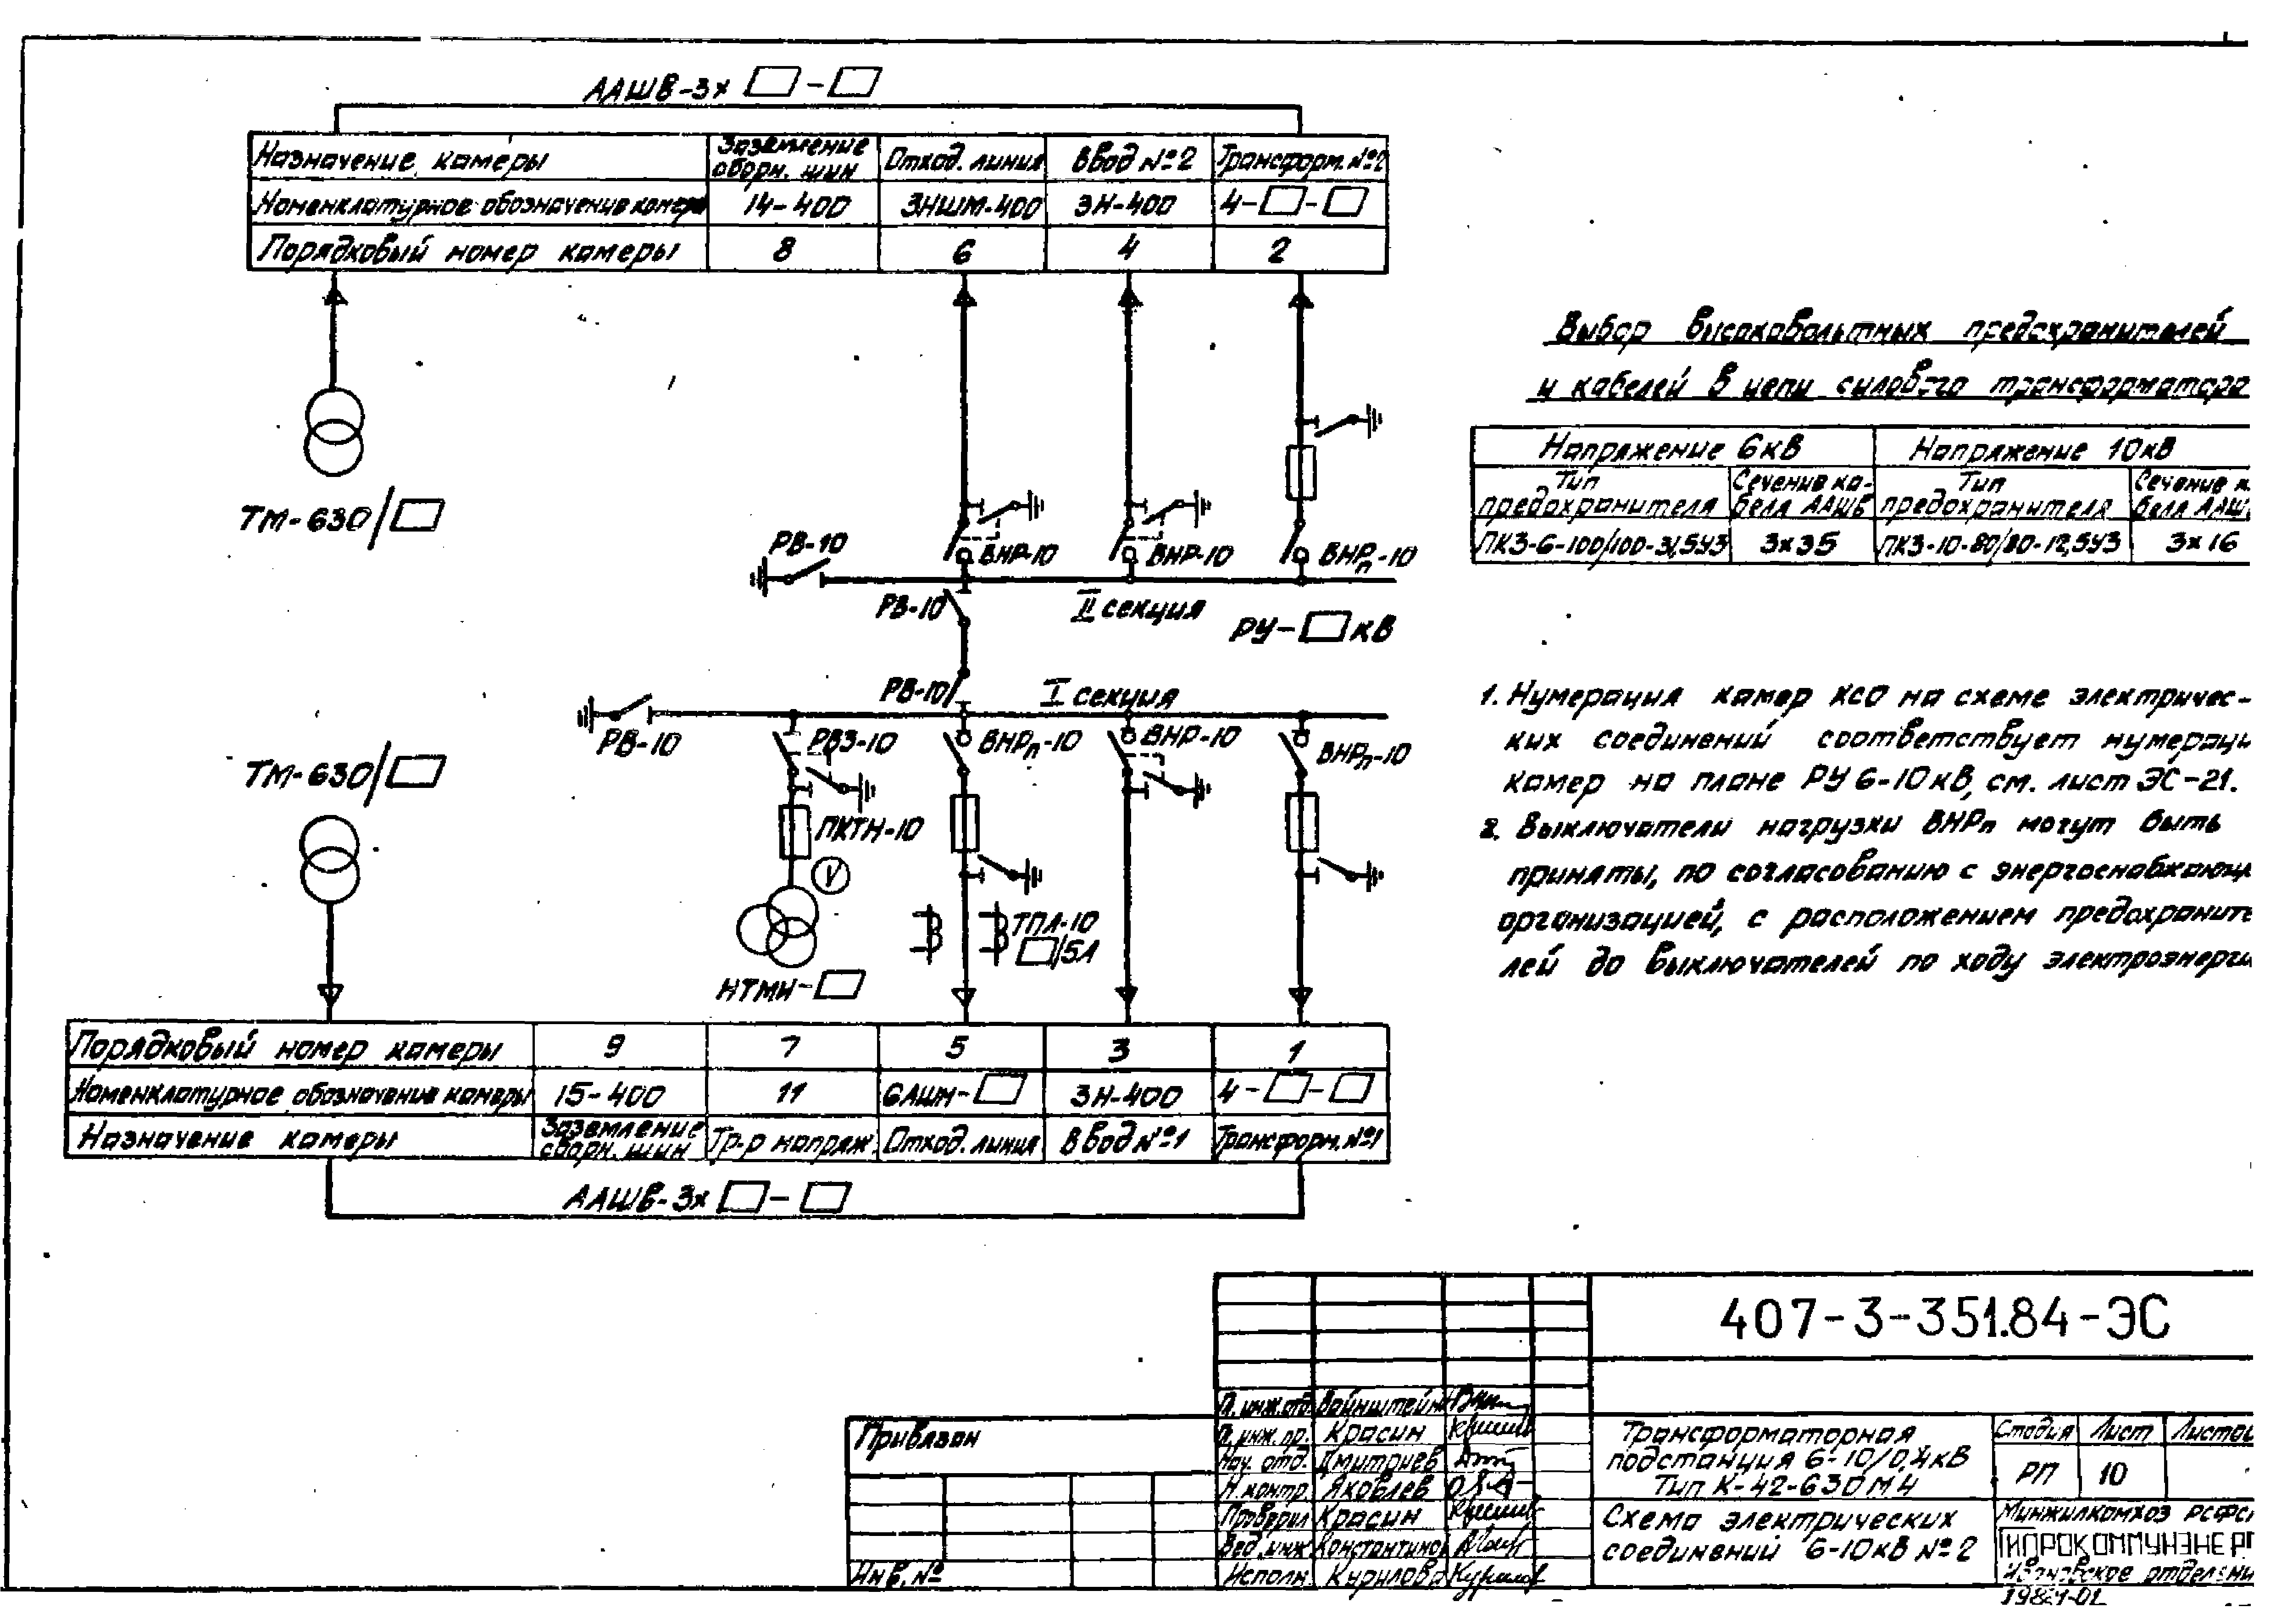 ААШВ-3х □-□
Назначение камеры
Заземление сборн. шин
Отход. линия
Ввод №2
Трансформ. №2
Номенклатурное обозначение камеры
14-400
3НШМ-400
3Н-400
4-□-□
Порядковый номер камеры
8
6
4
2
ТМ-630/□
РВ-10
ВНР-10
ВНР-10
ВНРп-10
РВ-10
II секция
РУ-□кВ
РВ-10
I секция
РВ-10
РВЗ-10
ВНРп-10
ВНР-10
ВНРп-10
ТМ-630/□
ПКТН-10
V
ТПЛ-10
□/5А
НТМИ-□
Порядковый номер камеры
9
7
5
3
1
Номенклатурное обозначение камеры
15-400
11
6АШМ-□
3Н-400
4-□-□
Назначение камеры
Заземление сборн. шин
Тр-р напряж.
Отход. линия
Ввод №1
Трансформ. №1
ААШВ-3х □-□
Выбор высоковольтных предохранителей
и кабелей в цепи силового трансформатора
Напряжение 6кВ
Напряжение 10кВ
Тип предохранителя
Сечение кабеля ААШВ
Тип предохранителя
Сечение к
беля ААШ
ПК3-6-100/100-31,5У3
3х35
ПК3-10-80/80-12,5У3
3х16
1. Нумерация камер КСО на схеме электричес-
ких соединений соответствует нумерации
камер на плане РУ 6-10кВ, см. лист ЭС-21.
2. Выключатели нагрузки ВНРп могут быть
приняты, по согласованию с энергоснабжающ
организацией, с расположением предохраните
лей до выключателей по ходу электроэнерги
407-3-351.84-ЭС
Гл. инж. отд. Вайнштейн
Гл. инж. пр. Красин
Нач. отд. Дмитриев
Н. контр. Яковлев
Проверил Красин
Вед. инж. Константино
Исполн. Курилова
Привязан
Инв. №
Трансформаторная
подстанция 6-10/0,4кВ
Тип К-42-630 М4
Стадия
Лист
Листов
РП
10
Схема электрических
соединений 6-10кВ №2
Минжилкомхоз РСФС
ГИПРОКОММУНЭНЕРГ
Ивановское отделени